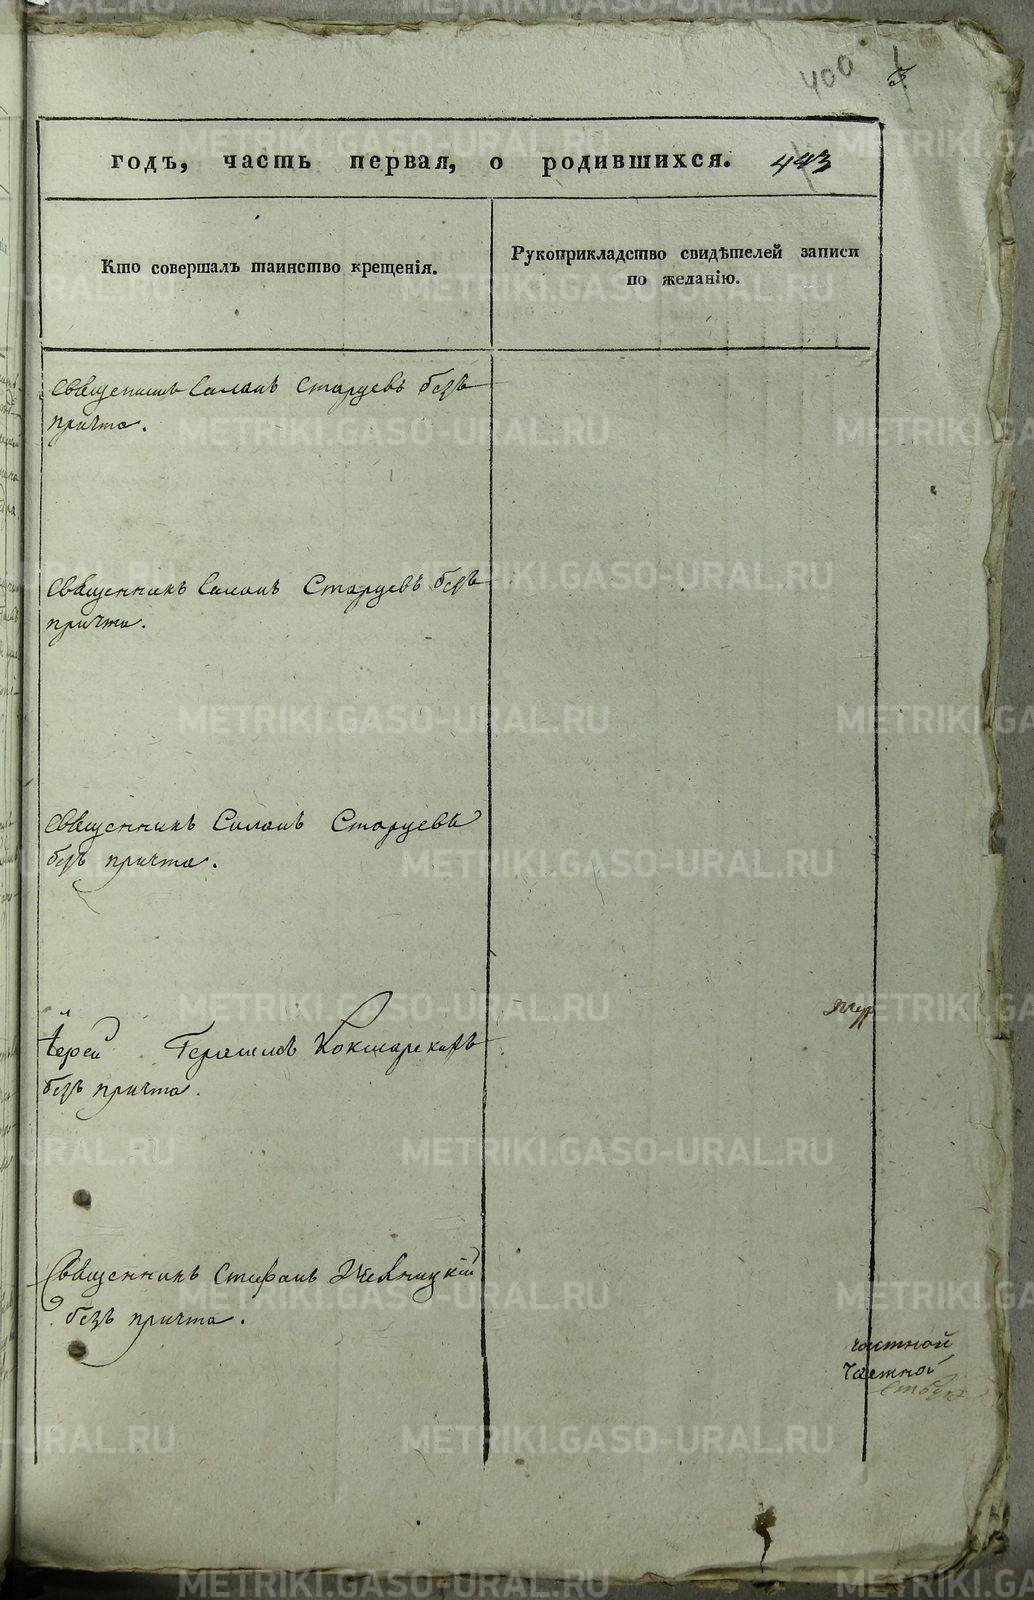 400
годъ, часть первая, о родившихся. 443
Кто совершалъ таинство крещенія.
Рукоприкладство свидѣтелей записи
по желанію.
Священникъ Силванъ Старцевъ безъ
причта.
Священникъ Силванъ Старцевъ безъ
причта.
Священникъ Силванъ Старцевъ
безъ причта.
Іерей Герасимъ Кокшарскихъ
безъ причта.
Священникъ Стефанъ
безъ причта.
частной
Частной
METRIKI.GASO-URAL.RU